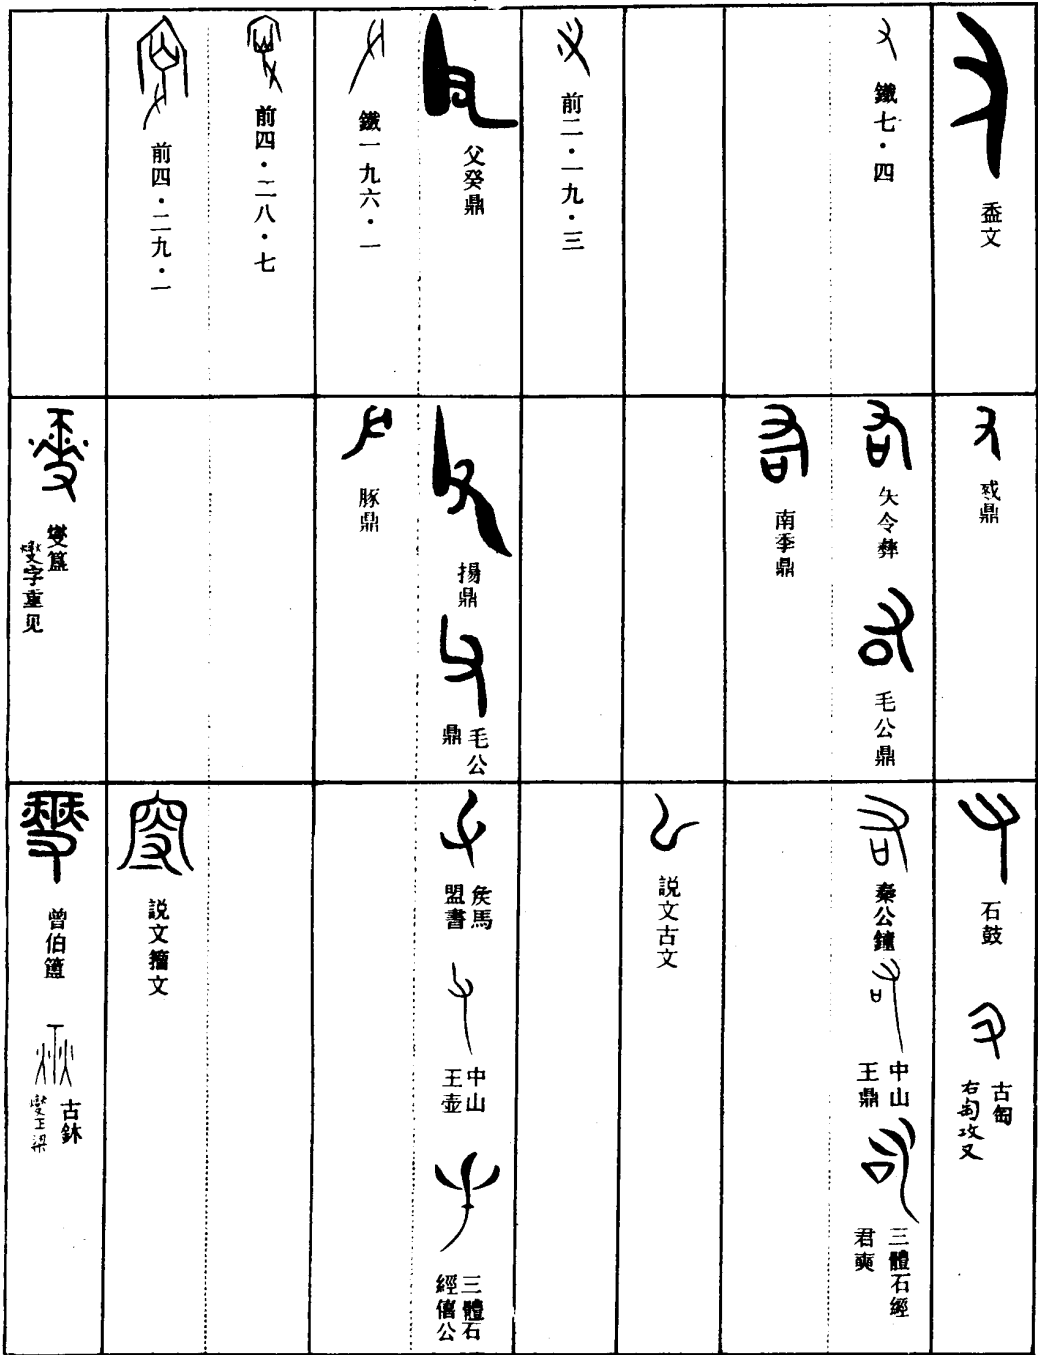 盉文
鐵七·四
前二·一九·三
父癸鼎
鐵一九六·一
前四·二八·七
前四·二九·一
戜鼎
矢令彝
毛公鼎
南季鼎
揚鼎
毛公鼎
豚鼎
燮簋
燮字重见
石鼓
古匋
右匋攻又
秦公鐘
中山王鼎
三體石經君奭
説文古文
矦馬盟書
中山王壺
三體石經僖公
説文籀文
曾伯簠
古鉥